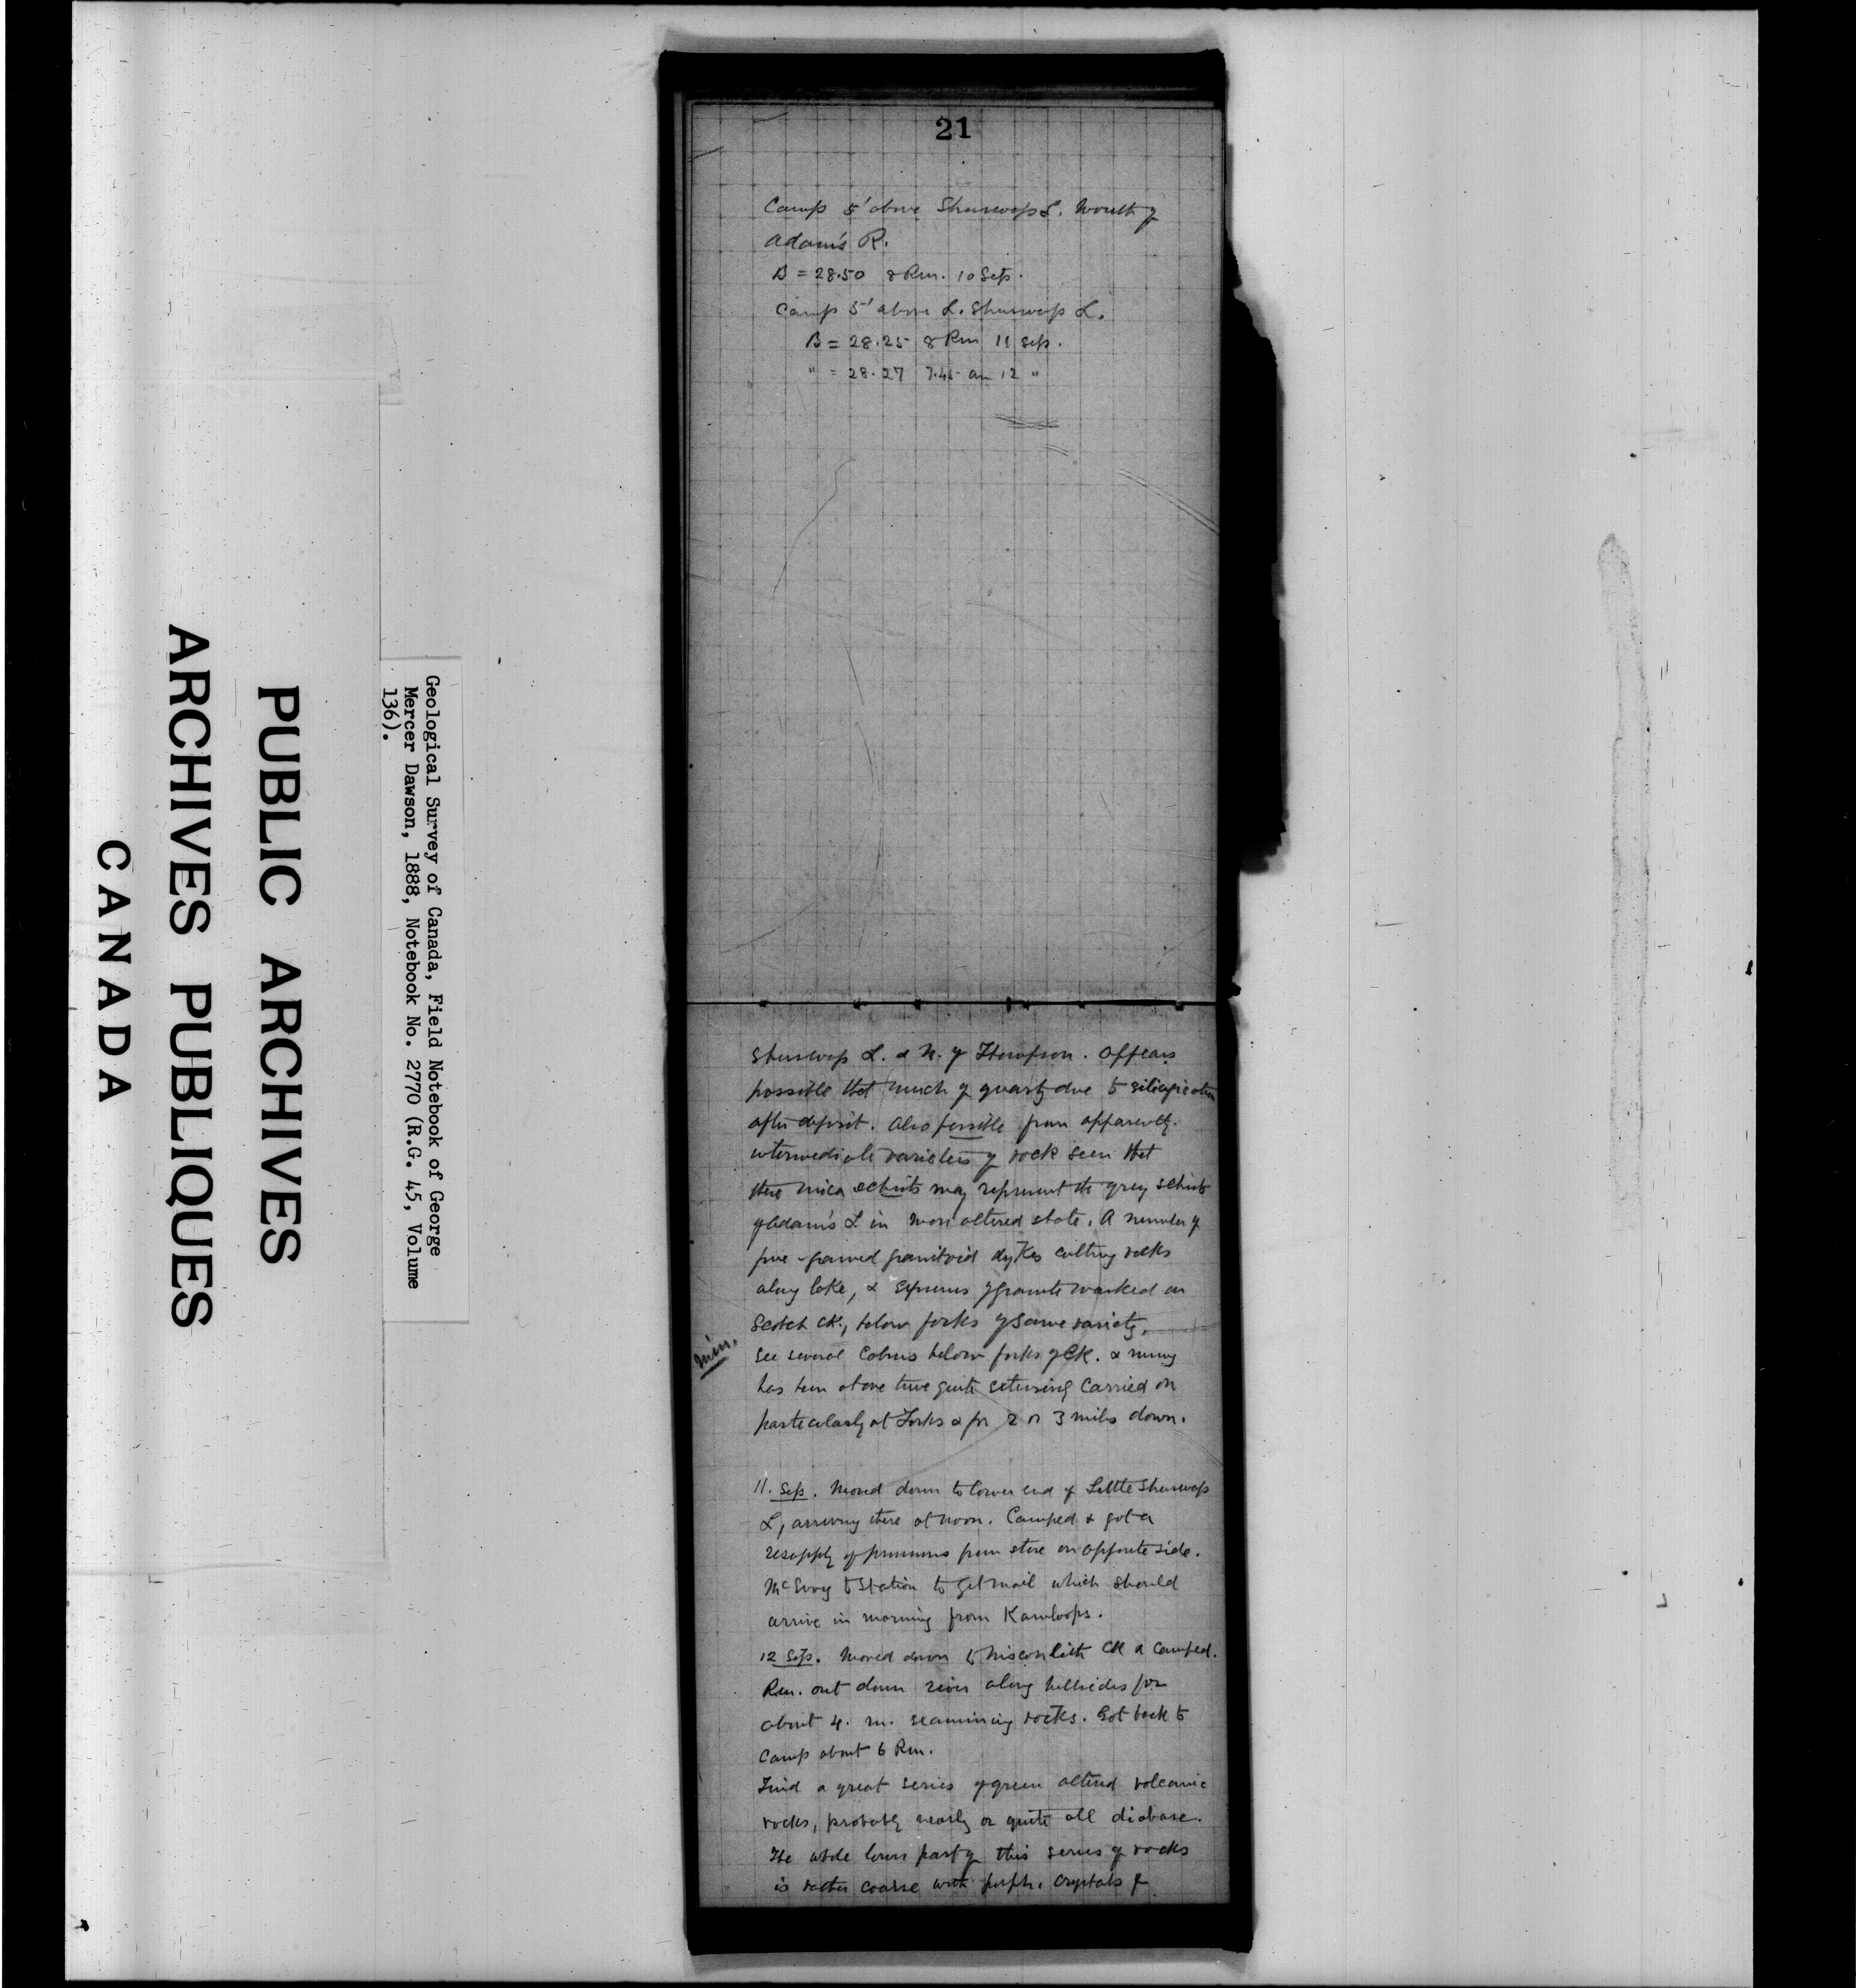 21
Camp 5' above Shuswap L. Mouth of
Adam's R.
B = 28.50 8 P.m. 10 Sep.
Camp 5' above L. Shuswap L.
B = 28.25 8 P.m 11 Sep.
" = 28.27 7.45 am 12 "
Shuswap L. & N. of Thompson. Appears
possible that much of quartz due to silicification
after deposit. Also possible from apparently
intermediate varieties of rock seen that
these mica schists may represent the grey schists
of Adam's L in more altered state. A number of
fine-grained granitoid dykes cutting rocks
along lake, & of granite marked on
Scotch Ck., below forks of same variety.
See several cabins below forks of Ck. & mining
min.
has been at one time quite extensively carried on
particularly at Forks & for 2 or 3 miles down.
11. Sep. Moved down to lower end of Little Shuswap
L, arriving there at noon. Camped & got a
resupply of provisions from store on opposite side.
McEvoy to Station to get mail which should
arrive in morning from Kamloops.
12 Sep. Moved down to Niskonlith Ck & camped.
P.m. out down river along hillsides for
about 4. m. examining rocks. Got back to
camp about 6 P.m.
Find a great series of green altered volcanic
rocks, probably nearly or quite all diabase.
The whole lower part of this series of rocks
is rather coarse with porph. crystals of
Geological Survey of Canada, Field Notebook of George
Mercer Dawson, 1888, Notebook No. 2770 (R.G. 45, Volume
136).
PUBLIC ARCHIVES
ARCHIVES PUBLIQUES
CANADA